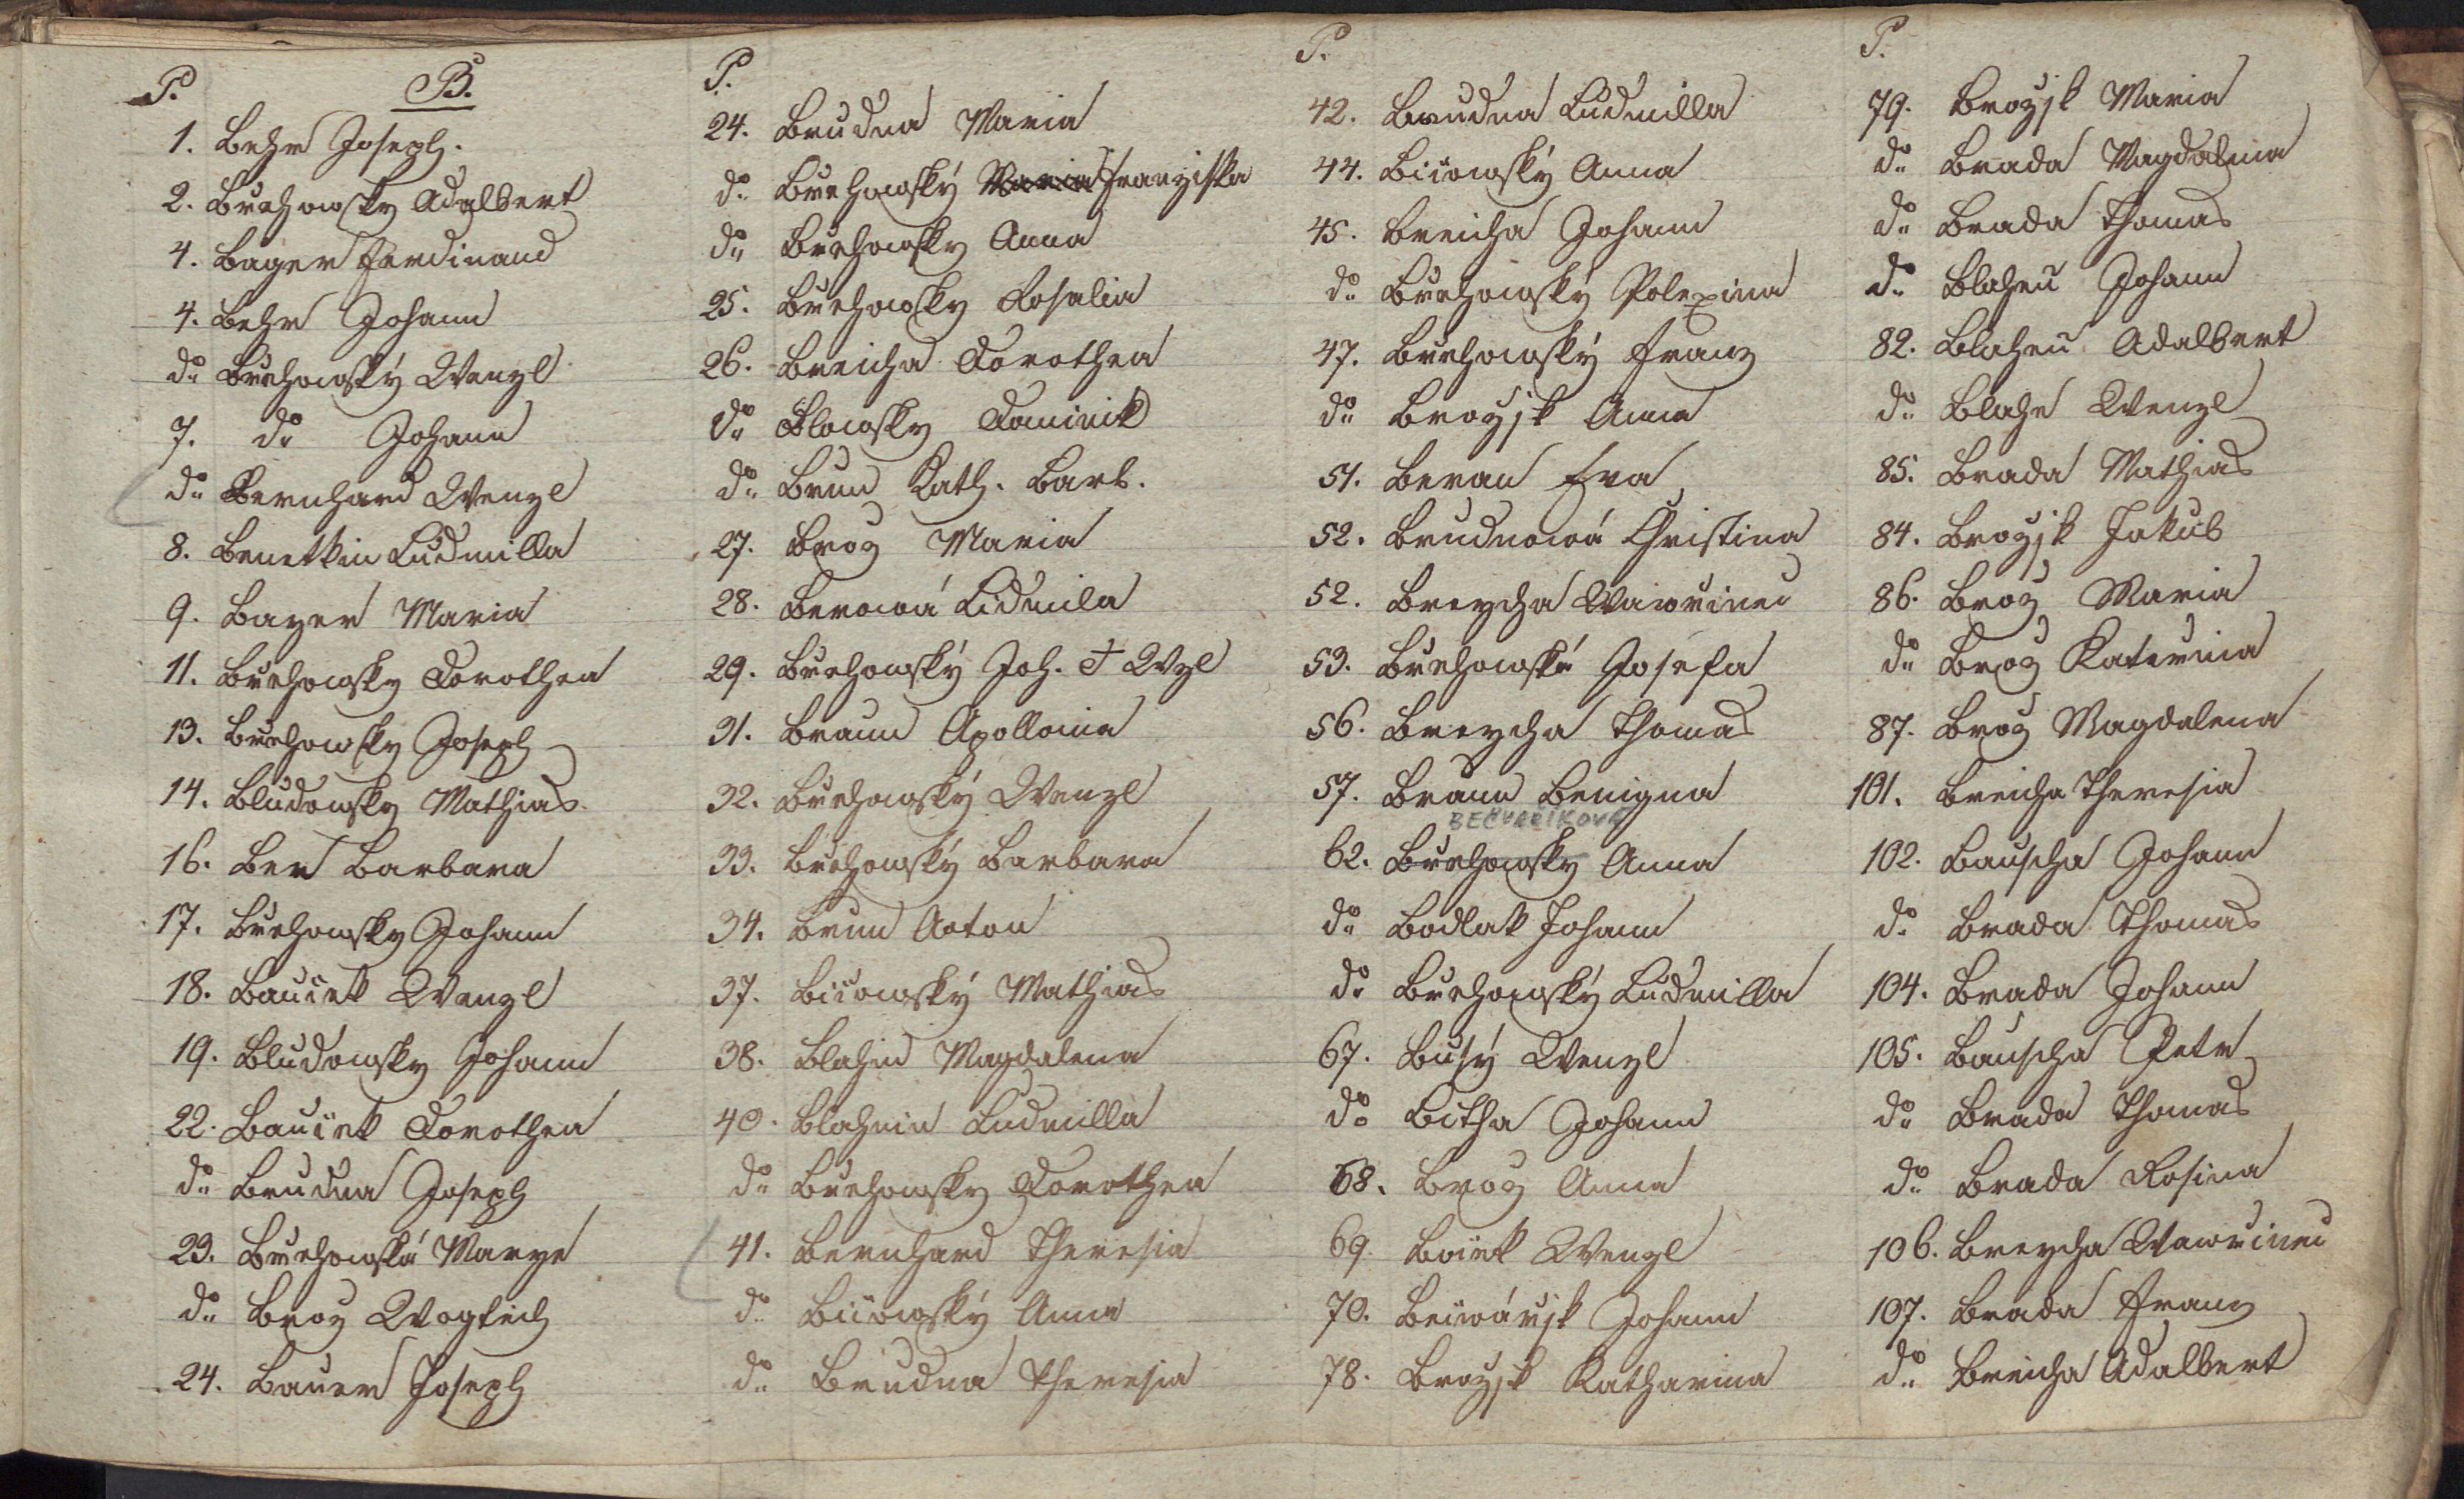 P. B.
1. Behr Joseph.
2. Burhowsky Adalbert
4. Bayer Ferdinand
4. Behr Johann
do Burhowský Wenzl
7. do Johann
do Bernhard Wenzl
8. Benetkin Ludmilla
9. Bayer Maria
11. Burhowsky Dorothea
13. Burhowsky Joseph
14. Bludowsky Mathias
16. Ber Barbara
17. Burhowsky Johann
18. Baucek Wenzl
19. Bludowsky Johann
22. Baucek Dorothea
do Brudna Joseph
23. Burhowská Marye
do Broz Wogtech
24. Bauer Joseph
P.
24. Brudna Maria
do Burhowský Franziska
do Burhowsky Anna
25. Burhowsky Rosalia
26. Breicha Dorothea
do Blowsky Dominik
do Brun Kath. Barb.
27. Broz Maria
28. Berowá Lidmila
29. Burhowský Joh. & Wzl
31. Braun Apollonia
32. Burhowský Wenzl
33. Burhowský Barbara
34. Brun Anton
37. Bicowský Mathias
38. Blahin Magdalena
40. Blahnin Ludmilla
do Burhowsky Dorothea
41. Bernhard Theresia
do Bicowský Anna
do Brudna Theresia
P.
42. Brudna Ludmilla
44. Bicowský Anna
45. Breicha Johann
do Burhowský Polexina
47. Burhowský Franz
do Brozjk Anna
51. Beran Eva
52. Brudnowá Christina
52. Breycha Wawrinec
53. Burhowská Josefa
56. Breycha Thomas
57. Braun Benigna
BEČVAŘÍKOVÁ
62. Burhowsky Anna
do Bodlak Johann
do Burhowský Ludmilla
67. Busý Wenzl
do Bitha Johann
68. Broz Anna
69. Bocek Wenzl
70. Becwárjk Johann
78. Brozjk Katharina
P.
79. Brozjk Maria
do Brada Magdalena
do Brada Thomas
do Blaheu Johann
82. Blaheu Adalbert
do Blaha Wenzl
85. Brada Mathias
84. Brozjk Jakub
86. Broz Maria
do Broz Katerina
87. Broz Magdalena
101. Breicha Theresia
102. Bauscha Johann
do Brada Thomas
104. Brada Johann
105. Bauscha Petr
do Brada Thomas
do Brada Rosina
106. Breycha Wawrinec
107. Brada Franz
do Breicha Adalbert